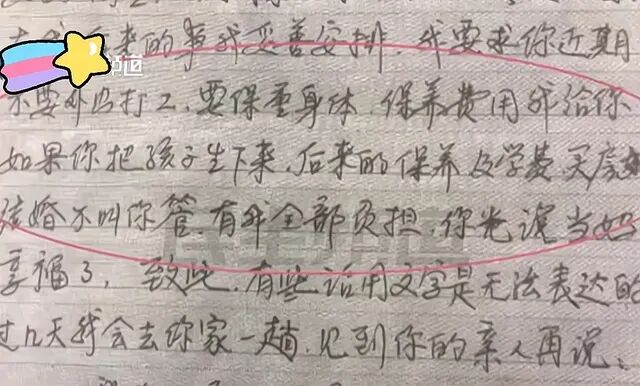 后来的事我妥善安排 我要求你近期
不要外出打工.要保重身体.保养费用我给你
如果你把孩子生下来.后来的保养及学费买房
结婚不叫你管.有我全部负担.你光说当妈
享福了,致此.有些话用文字是无法表达的
过几天我会去你家一趟.见到你的亲人再说.